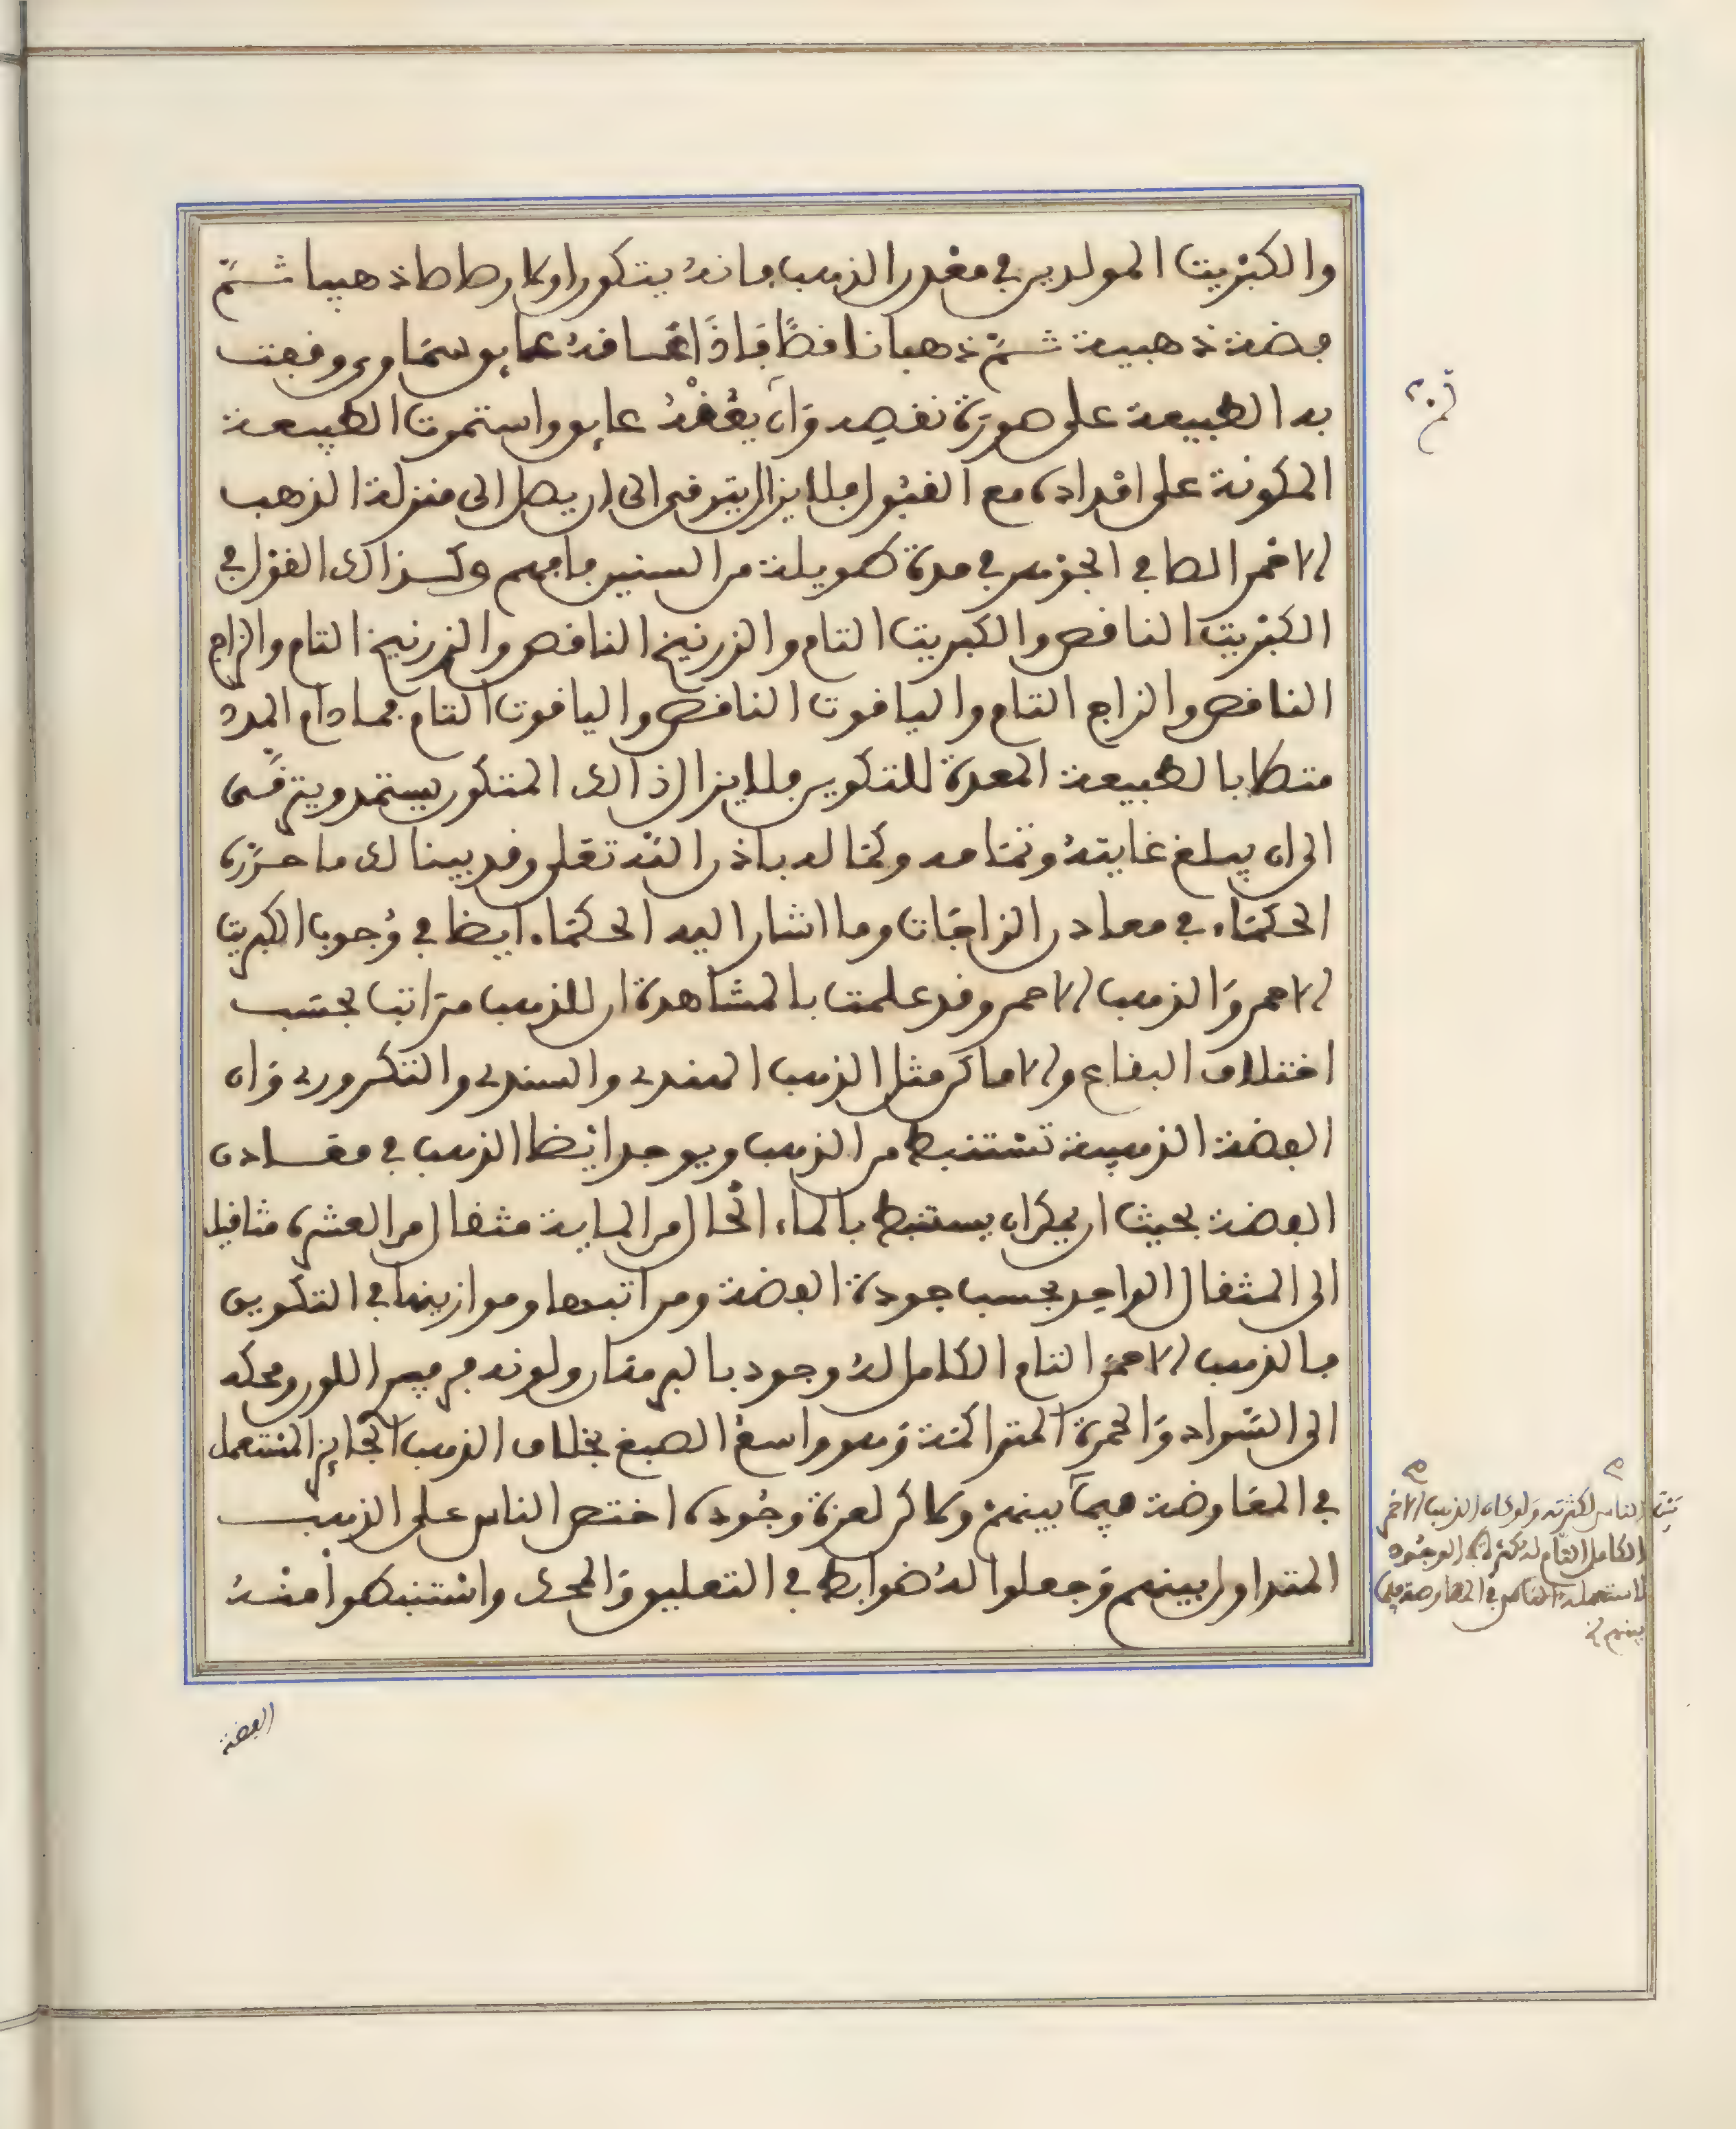 والكبريت المولدين في معدن الذهب فانه يتكون اولا رصاصا ذهبيا ثمّ
فضة ذهبية ثمّ ذهبا ناقصًا فَاذَا عَاقهُ عايق سمَاوي وقفت
به الطبيعة على صورَة نقصِه وَان لم يعُقْهُ عايق واستمرت الطبيعة
المكونة على امداده مع القبُول فلا يزال يترقى الى ان يصل الى منزلة الذهب
الاحمر الصافي الجوهر في مدة طويلة من السنين فافهم وكذالك القول في
الكبْريت الناقص والكبريت التام والزرنيخ الناقص والزرنيخ التام والزاج
الناقص والزاج التام والياقوت الناقص والياقوت التام فمادام المدد
متصلا بالطبيعة المعدة للتكوين فلا يزال ذالك المتكون يستمد ويترقّى
الى ان يبلغ غايتهُ وتمَامه وكمَاله باذن الله تعلى وقد بينا لك ما حرّره
الحكمَاء في معادن الزاجَات وما اشار اليه الحكمَاء ايضا في وُجوب الكبريت
الاحمر وَالذهب الاحمر وقد علمت بالمشاهدة ان للذهب مرَاتب بحسَب
اختلاف البقاع والاماكن مثل الذهب الهندي والسندي والتكروري وَان
الفضة الذهبية تستنبط من الذهب ويوجد ايْضا الذهب في معَادن
الفضة بحيث ان يمكن ان يستنبط بالماء الحَال من الماية مثقال من العشرة مثاقيل
الى المثقال الواحد بحسب جودة الفضة ومراتبها وموازينها في التكوين
فالذهب الاحمَر التام الكامل لهُ وجود بالبرمقان ولونه قرميص اللون ومحكه
الى السَّواد وَالحمرة المترَاكمَة وَهو واسعُ الصبغ بخلاف الذهب الجَايز المستعمل
في المعَاوضة فيمَا بينهمْ ولاكن لعزة وجُوده اختصر الناس على الذهب
المتداول بينهم وَجعلوا لهُ ضوابط في التعليق وَالمحك واسْتنبطوا منْهُ
الفضة
الناس لكثرته ولو كان الذهب الاحمر
الكامل التام له كثرة في الوجُود
لاستعمله الناس في المعاوضة فيما
بينهم